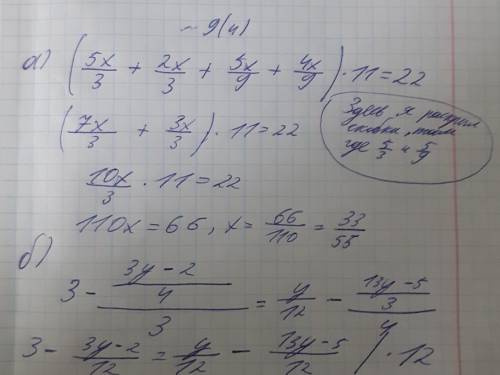 ~ 9(4)
а) (5x/3 + 2x/3 + 5x/9 + 4x/9) · 11 = 22
(7x/3 + 3x/3) · 11 = 22
Здесь я раскрыл
скобки, там
где 5/3 и 5/9
10x/3 · 11 = 22
110x = 66, x = 66/110 = 33/55
б)
3 - ((3y-2)/4)/3 = y/12 - ((13y-5)/3)/4
3 - (3y-2)/12 = y/12 - (13y-5)/12 / · 12